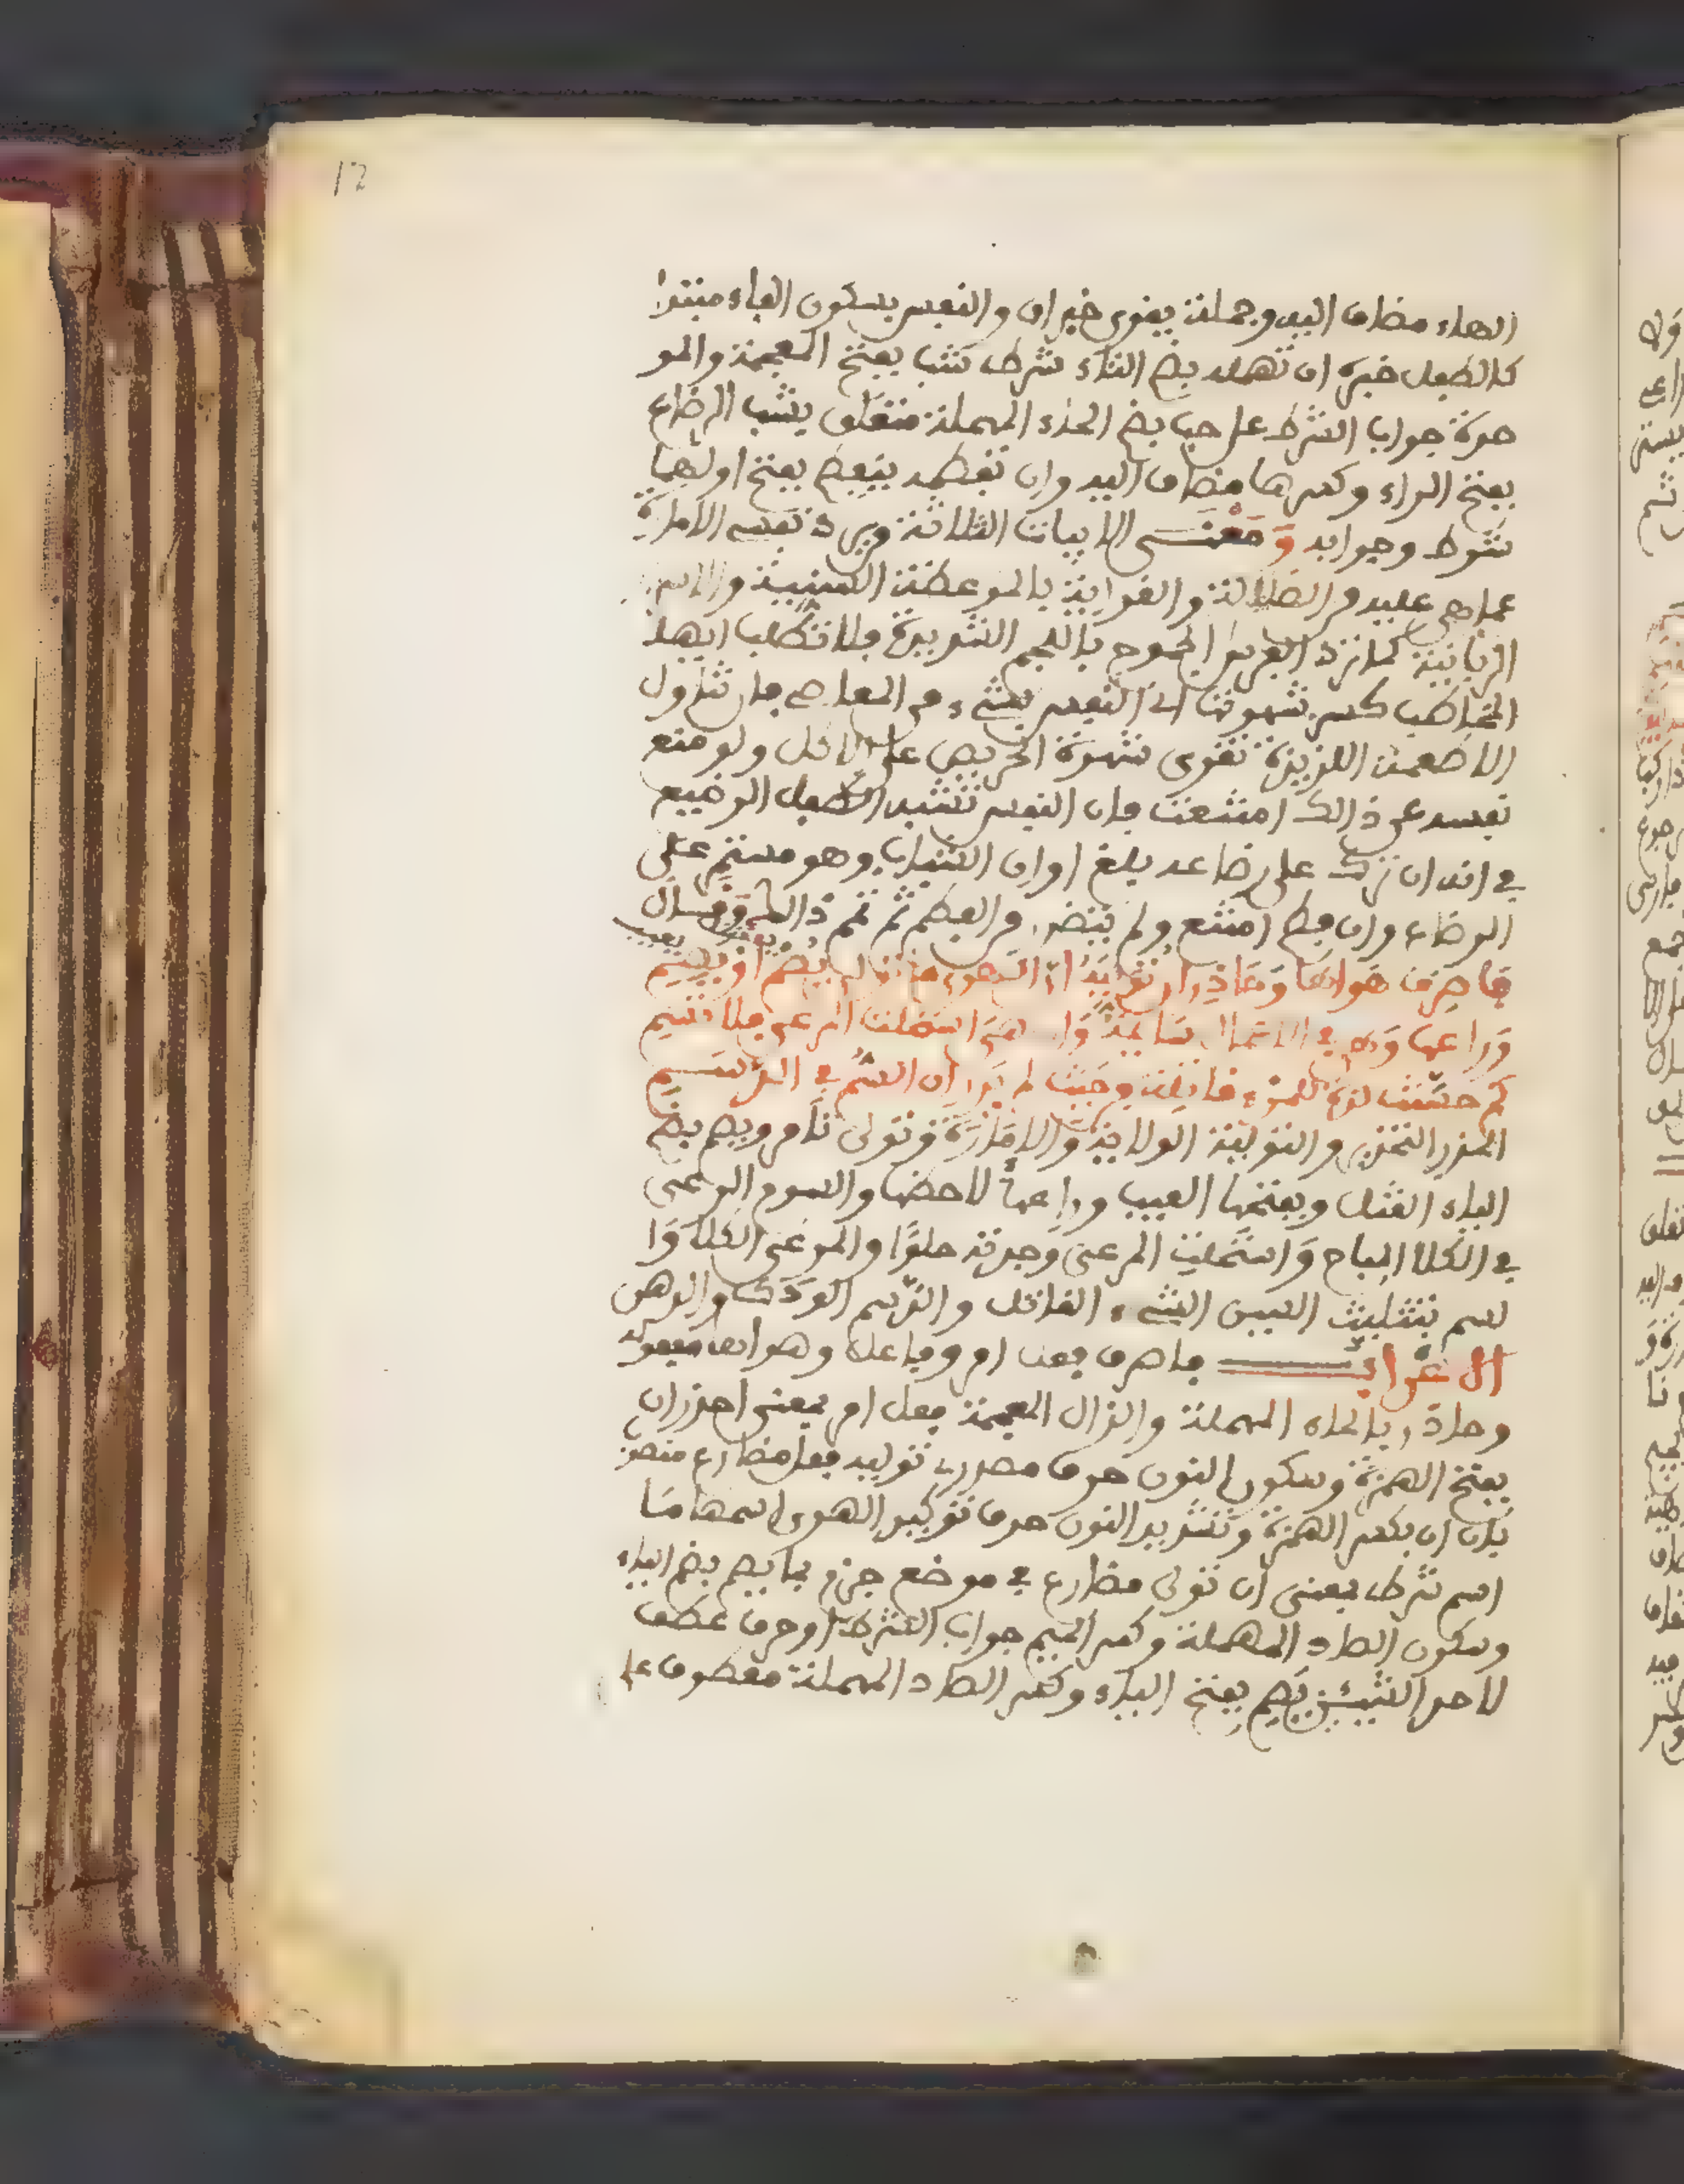 12
الهاء مضاف اليه وجملة يقوى خبر ان والنفس بسكون الفاء مبتدا
كالطفل خبره ان تهمله بضم التاء شرط شب بفتح المعجمة والمو
حدة جواب الشرط على حب بضم الحاء المهملة متعلق بشب الرضاع
بفتح الراء وكسرها مضاف اليه وان تفطمه ينفطم بفتح اولهما
شرط وجوابه وَمَعْنَى الابيات الثلاثة ويرد نفسه الامارة
عما هي عليه من الضلالة والغواية بالموعظة السنية
الربانية كما ترد الفرس الجموح باللجم الشديدة فلا تطلب ايها
المخاطب كسر شهوتها اي النفس بشيء من المعاصي فان تناول
الاطعمة اللذيذة تقوى شهوة الحريص على الاكل ولو منع
نفسه عن ذالك امتنعت فان النفس تشبه الطفل الرضيع
في انه ان ترك على رضاعه بلغ اوان الشباب وهو مستمر على
الرضاع وان فطم امتنع ولم يتضرر من الفطم ثم تمم ذالك وقال
فاصرف هواها وَحَاذِر ان تُوَلِّيَهُ ان الهوى ما تولى يُصْمِ اوْ يَصِمِ
وَرَاعِهَا وَهي في الاعمال سَائمة وَان هِيَ استحلت المرعى فلا تسم
كم حسَّنت لذة للمرء قاتلة من حيث لم يَدْرِ ان السم في الدَّسَمِ
الحذر التحذير والتولية الولاية وَالامَارَة وتولى تأمر ويصم بضم
الياء القتل وبفتحها العيب وراعها لاحضها والسوم الرعي
في الكلا المباح وَاستحلت المرعى وَجدته حلوًا والمرعى الكلا وَا
لسم بتثليث السين الشيء القاتل والدسم الوَدَك والدهن
الاعراب فاصرف فعل امر وفاعله وهواها مفعوله
وحاذر بالحاء المهملة والذال المعجمة فعل امر بمعنى احذر ان
بفتح الهمزة وسكون النون حرف مصدري توليه فعل مضارع منصوب
بان ان بكسر الهمزة وتشديد النون حرف توكيد الهوى اسمها مَا
اسم شرط بمعنى ان تولى مضارع في موضع جزم بما يصم بضم الياء
وسكون الصاد المهملة وكسر الميم جواب الشرط او حرف عطف
لاحد الشيئين يَصِمِ بفتح الياء وكسر الصاد المهملة معطوف على